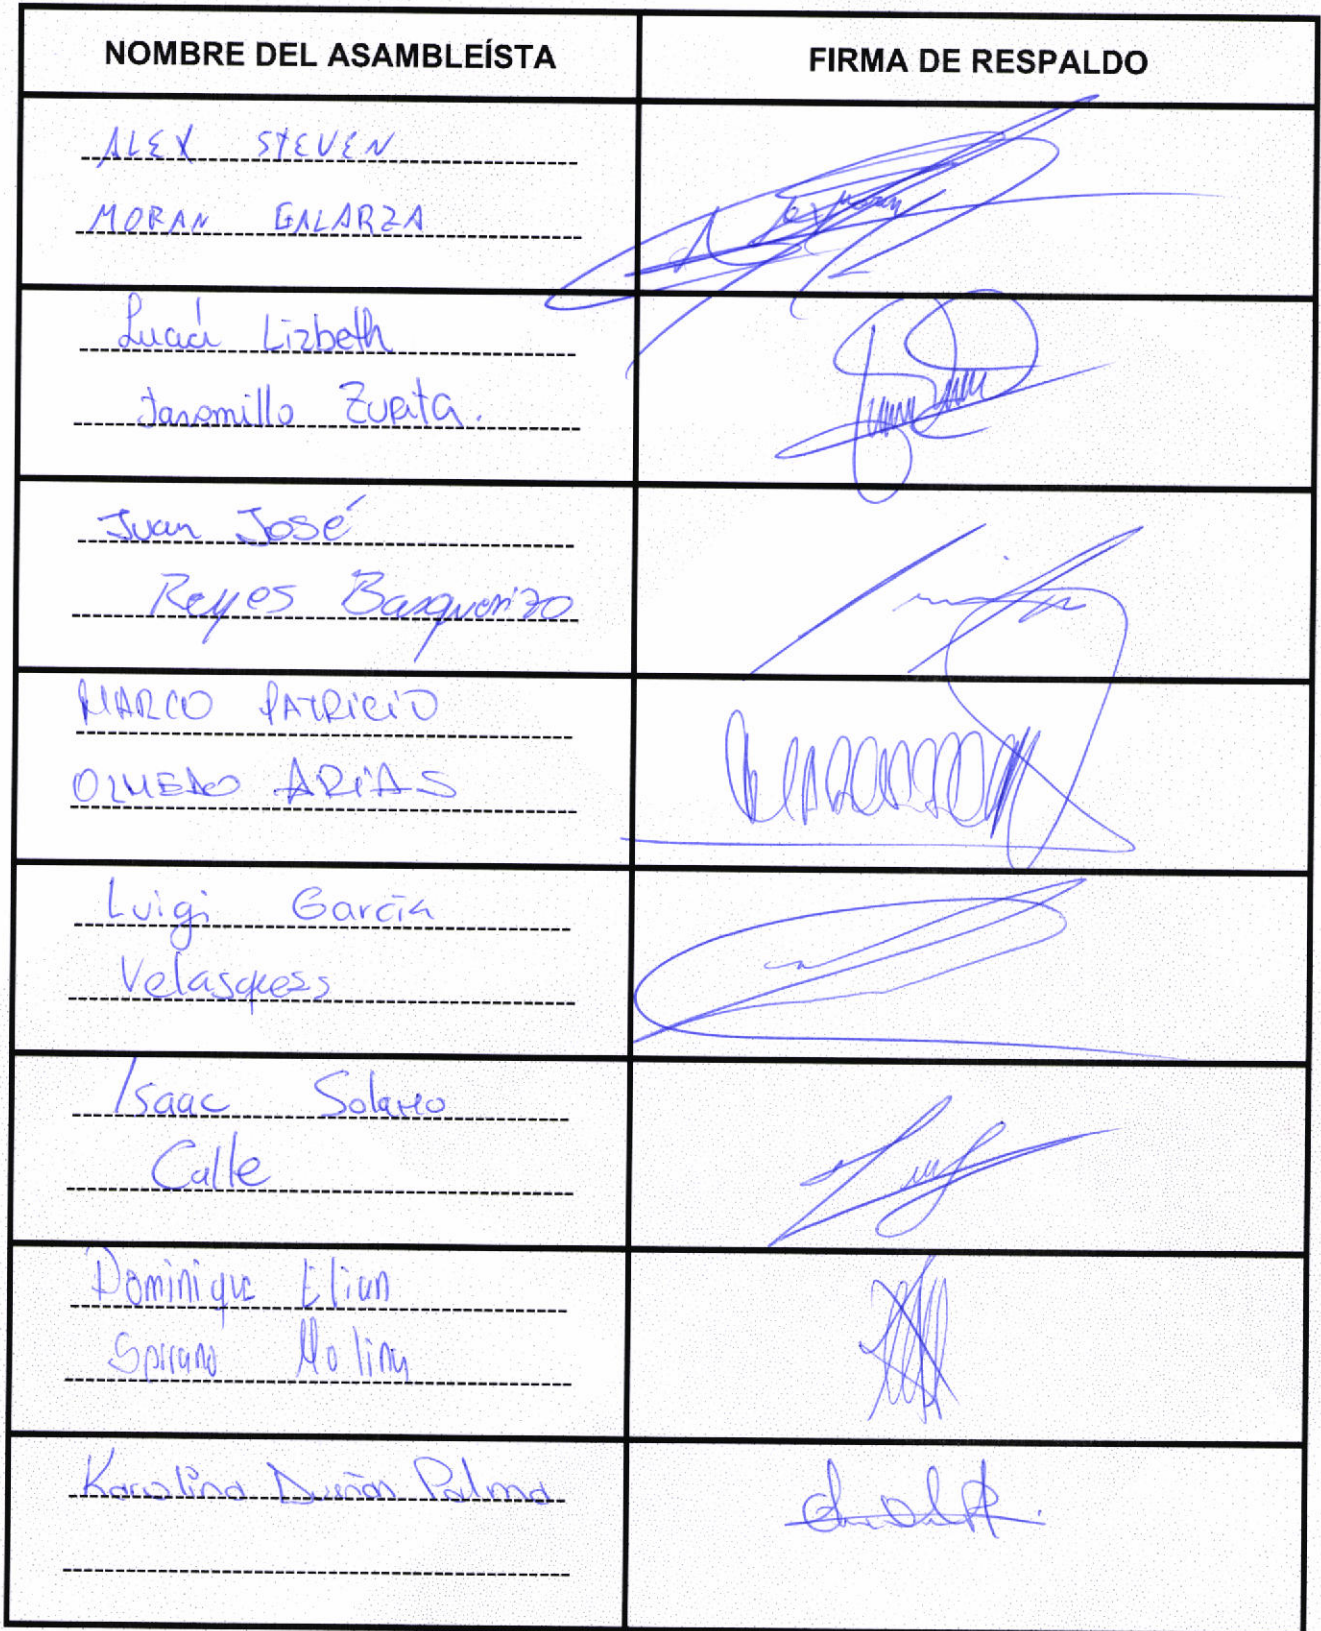 NOMBRE DEL ASAMBLEÍSTA
FIRMA DE RESPALDO
ALEX STEVEN
MORAN GALARZA
Lucía Lizbeth
Jaramillo Zurita.
Juan José
Reyes Baquerizo
MARCO PATRICIO
OLMEDO ARIAS
Luigi García
Velasquess
Isaac Solano
Calle
Dominique Elian
Serrano Molina
Karolina Dueñas Palma